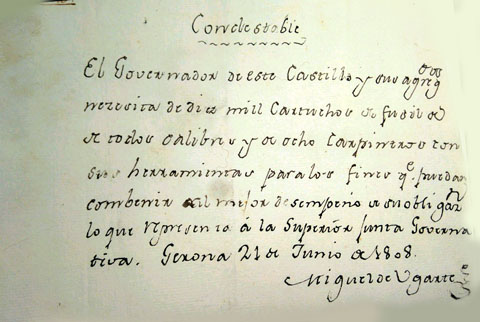 Condestable
El Governador de este Castillo y sus agreg.dos
necesita de diez mil Cartuchos de fusil de
de todos calibres y de ocho Carpinteros con
sus herramientas para los fines q.e puedan
combenir al mejor desempeño de su obligaz.n
lo que represento á la Superior Junta Governa
tiva. Gerona 21 de Junio de 1808.
Miguel de Ugarte